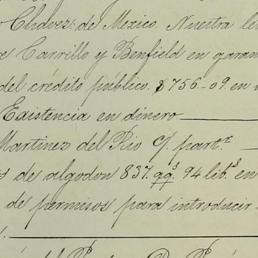 Chavez: de Mexico. Nuestra le
Carrillo y Benfield en garan
del crédito público. $756-09. en
Existencia en dinero
Martinez del Rio
de algodon 837. qq.s 94 lib.s en
de permisos para introducir